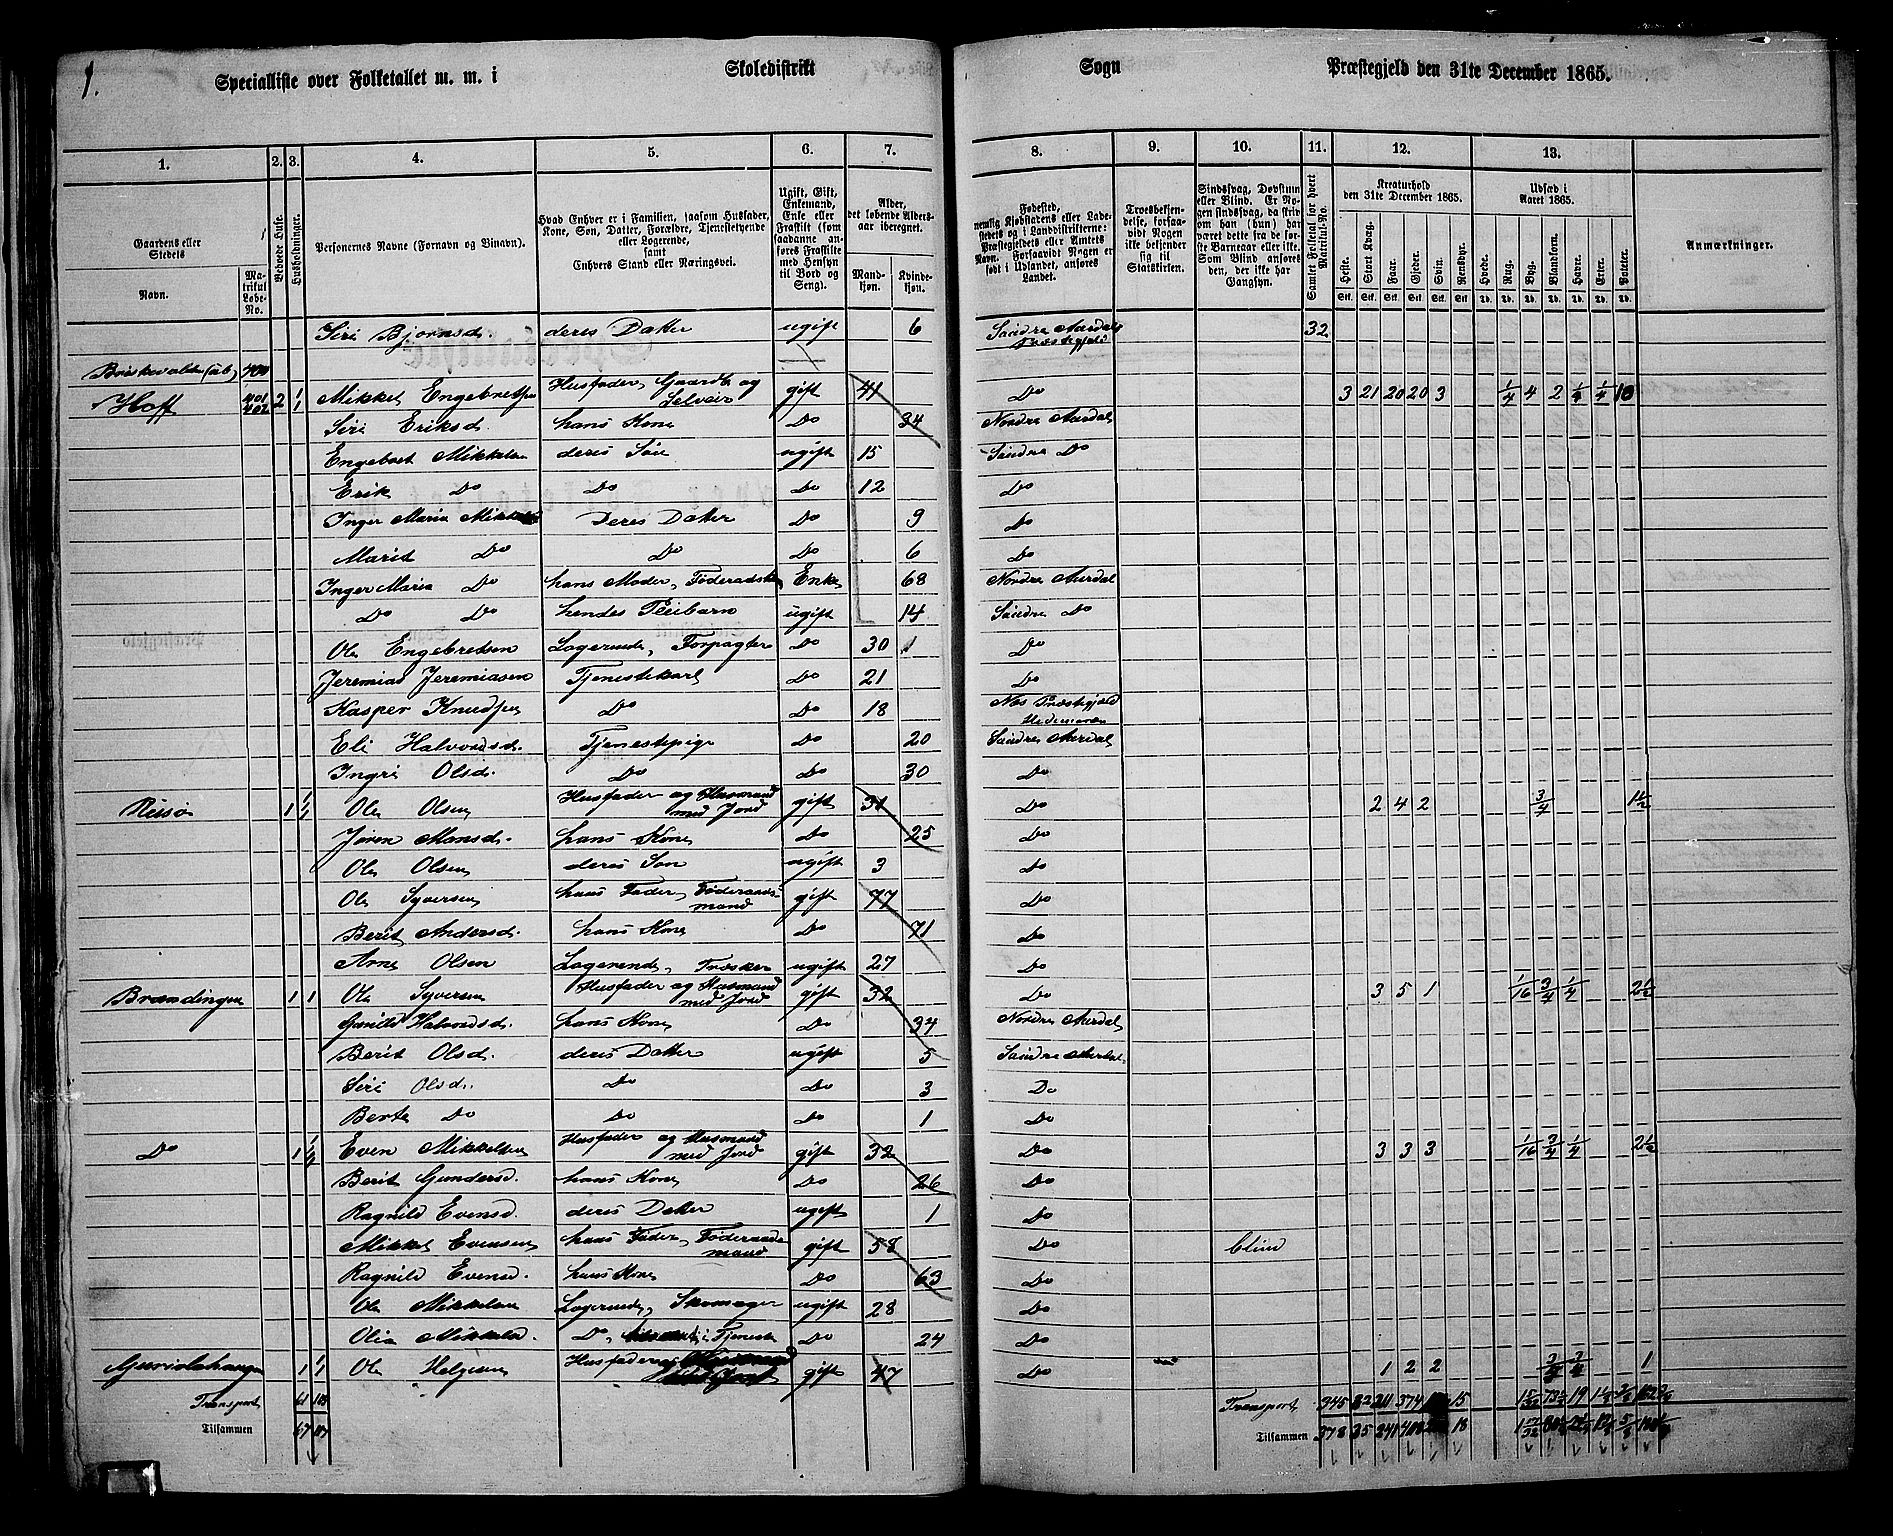 9.
Specialliste over Folketallet m. m. i Skoledistrikt Sogn Præstegjeld den 31te December 1865.
1. 2. 3. 4. 5. 6. 7. 8. 9. 10. 11. 12. 13.
Gaardens eller Stedets Navn.
Matrikul Løbe-No.
Beboede Huse.
Husholdninger.
Personernes Navne (Fornavn og Binavn).
Hvad Enhver er i Familien, saasom Husfader, Kone, Søn, Datter, Forældre, Tjenestetyende eller Logerende, samt Enhvers Stand eller Næringsvei.
Ugift, Gift, Enkemand, Enke eller Fraskilt (som saadanne anføres Fraskilte med Hensyn til Bord og Seng).
Alder, det løbende Alders-aar iberegnet.
Mandkjøn. Kvindekjøn.
Fødested, nemlig Kjøbstadens eller Ladestedets og i Landdistrikterne: Præstegjeldets eller Amtets Navn. Forsaavidt Nogen er født i Udlandet, anføres Landet.
Troesbekjendelse, forsaavidt Nogen ikke bekjender sig til Statskirken.
Sindssvag, Døvstum eller Blind. Er Nogen sindssvag, da skrives om han (hun) har været dette fra de første Barneaar eller ikke. Som Blind anføres den, der ikke har Gangsyn.
Samlet Folketal for hvert Matrikul-No.
Kreaturhold den 31te December 1865.
Heste. Stort Kvæg. Faar. Gjeder. Svin. Rensdyr.
Udsæd i Aaret 1865.
Hvede. Rug. Byg. Blandkorn. Havre. Erter. Poteter.
Anmærkninger.
Siri Bjørnsd. deres Datter ugift 6 Søndre Aurdals Præstegjeld 32
400
Hoff 401 402 2 1 1 Mikkel Engebretsen Husfader, Gaardb. og Selveier gift 41 Do 3 21 20 20 3 1/4 4 2 1/4 1/4 10
Siri Eriksd. hans Kone Do 34 Nordre Aurdal
Engebret Mikkelsen deres Søn ugift 15 Søndre Do
Erik Do Do Do 12 Do
Inger Maria Mikkelsd Deres Datter Do 9 Do
Marit Do Do Do 6 Do
Inger Maria Do hans Moder, Føderadsk. Enke 68 Nordre Aurdal
Do Do hendes Pleiebarn ugift 14 Søndre Do
Ole Engebretsen Logerende, Forpagter Do 30 Do
Jeremias Jeremiasen Tjenestekarl Do 21 Do
Kasper Knudsen Do Do 18 Næs Præstegjeld Hedemarken
Eli Halvorsd. Tjenestepige Do 20 Søndre Aurdal
Ingri Olsd. Do Do 30 Do
1 1 1 Ole Olsen Husfader og Husmand med Jord gift 31 Do 2 4 2 3/4 1 1/2
Jøren Monsd. hans Kone Do 25 Do
Ole Olsen deres Søn ugift 3 Do
Ole Syversen hans Fader, Føderaadsmand gift 77 Do
Berit Andersd. hans Kone Do 71 Do
Arne Olsen Logerende, Træsker ugift 27 Do
Brændingen 1 1 Ole Syversen Husfader og Husmand med Jord gift 32 Do 3 5 1 1/16 3/4 1/4 2 1/2
Gunild Halvorsd. hans Kone Do 34 Nordre Aurdal
Berit Olsd. deres Datter ugift 5 Søndre Aurdal
Siri Olsd. Do Do 3 Do
Berte Do Do Do 1 Do
Do 1 1 1 Even Mikkelsen Husfader og Husmand med Jord gift 32 Do 3 3 3 1/16 3/4 1/4 2 1/2
Berit Gundersd. hans Kone Do 26 Do
Ragnild Evensd. deres Datter ugift 1 Do
Mikkel Evensen hans Fader, Føderaadsmand gift 58 Do blind
Ragnild Evensd. hans Kone Do 63 Do
Ole Mikkelsen Logerende, Skomager ugift 28 Do
Olia Mikkelsd. Do, i Tjeneste Do 24 Do
1 1 1 Ole Helgesen Husfader gift 47 Do 1 2 2 3/4 1
Transport 61 Transport 345 32 211 374 15
Tilsammen 67 Tilsammen 378 35 241 18